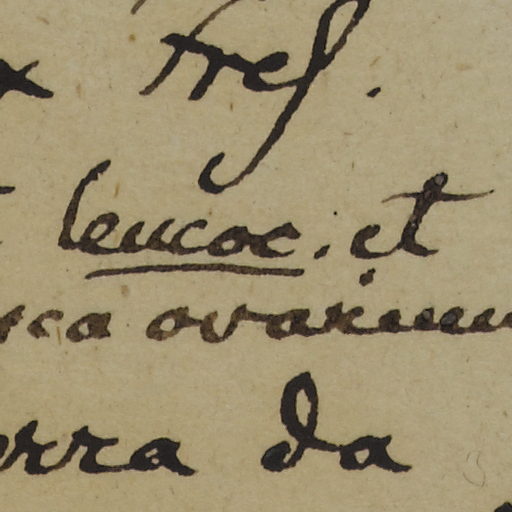 x Fref.
leucoc. et
rca ovarium
erra da